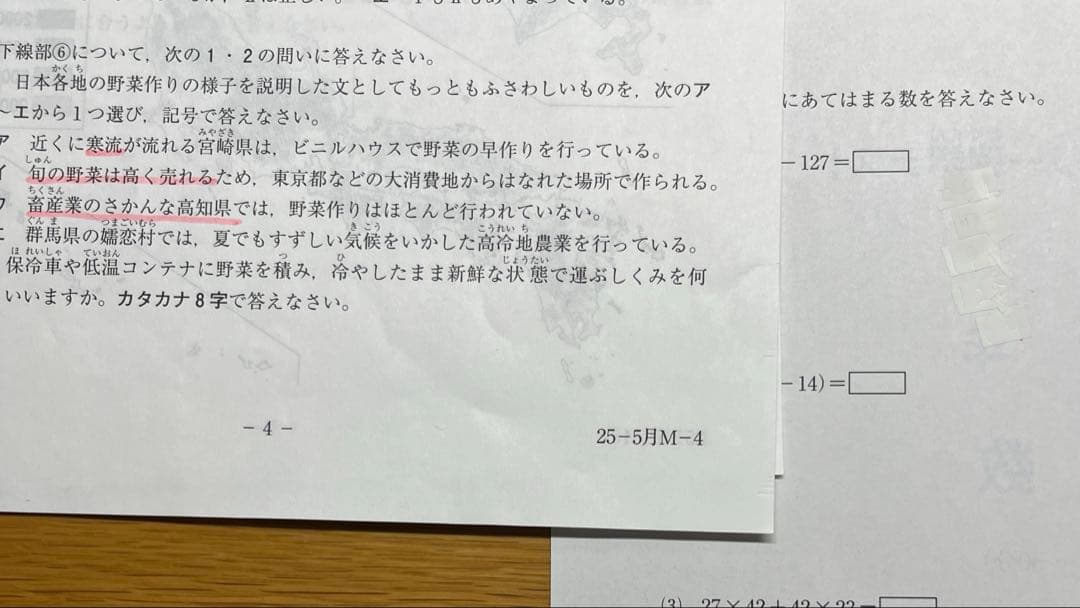 下線部⑥について，次の１・２の問いに答えなさい。
日本各地の野菜作りの様子を説明した文としてもっともふさわしいものを，次のア
～エから１つ選び，記号で答えなさい。
ア 近くに寒流が流れる宮崎県は，ビニルハウスで野菜の早作りを行っている。
イ 旬の野菜は高く売れるため，東京都などの大消費地からはなれた場所で作られる。
ウ 畜産業のさかんな高知県では，野菜作りはほとんど行われていない。
エ 群馬県の嬬恋村では，夏でもすずしい気候をいかした高冷地農業を行っている。
保冷車や低温コンテナに野菜を積み，冷やしたまま新鮮な状態で運ぶしくみを何
いいますか。カタカナ８字で答えなさい。
－ 4 －
25－5月M－4
にあてはまる数を答えなさい。
－127＝
－14）＝
(3) 27×42＋42×22＝